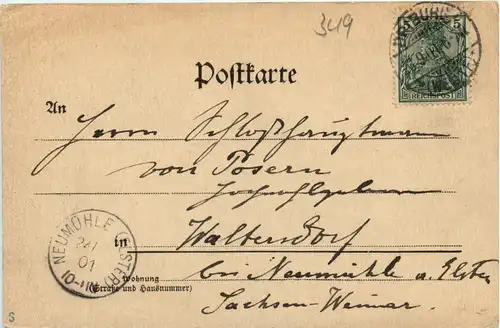 349
5
REICHSPOST
Postkarte
An
Herrn Schloßhauptmann
von Posern
Hochwohlgeboren
in Waltersdorf
bei Neumühle a. Elster
Wohnung
(Straße und Hausnummer)
Sachsen-Weimar.
NEUMÜHLE (ELSTER)
24/
01
S